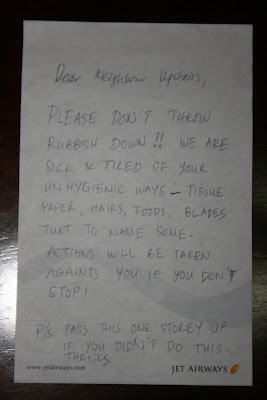 Dear Neighbour Upstairs,
PLEASE DON'T THROW
RUBBISH DOWN!! WE ARE
SICK & TIRED OF YOUR
UNHYGIENIC WAYS – TISSUE
PAPER, HAIRS, FOODS, BLADES
JUST TO NAME SOME.
ACTIONS WILL BE TAKEN
AGAINTS YOU IF YOU DON'T
STOP!
P/s: PASS THIS ONE STOREY UP
IF YOU DIDN'T DO THIS.
THANKS
www.jetairways.com JET AIRWAYS